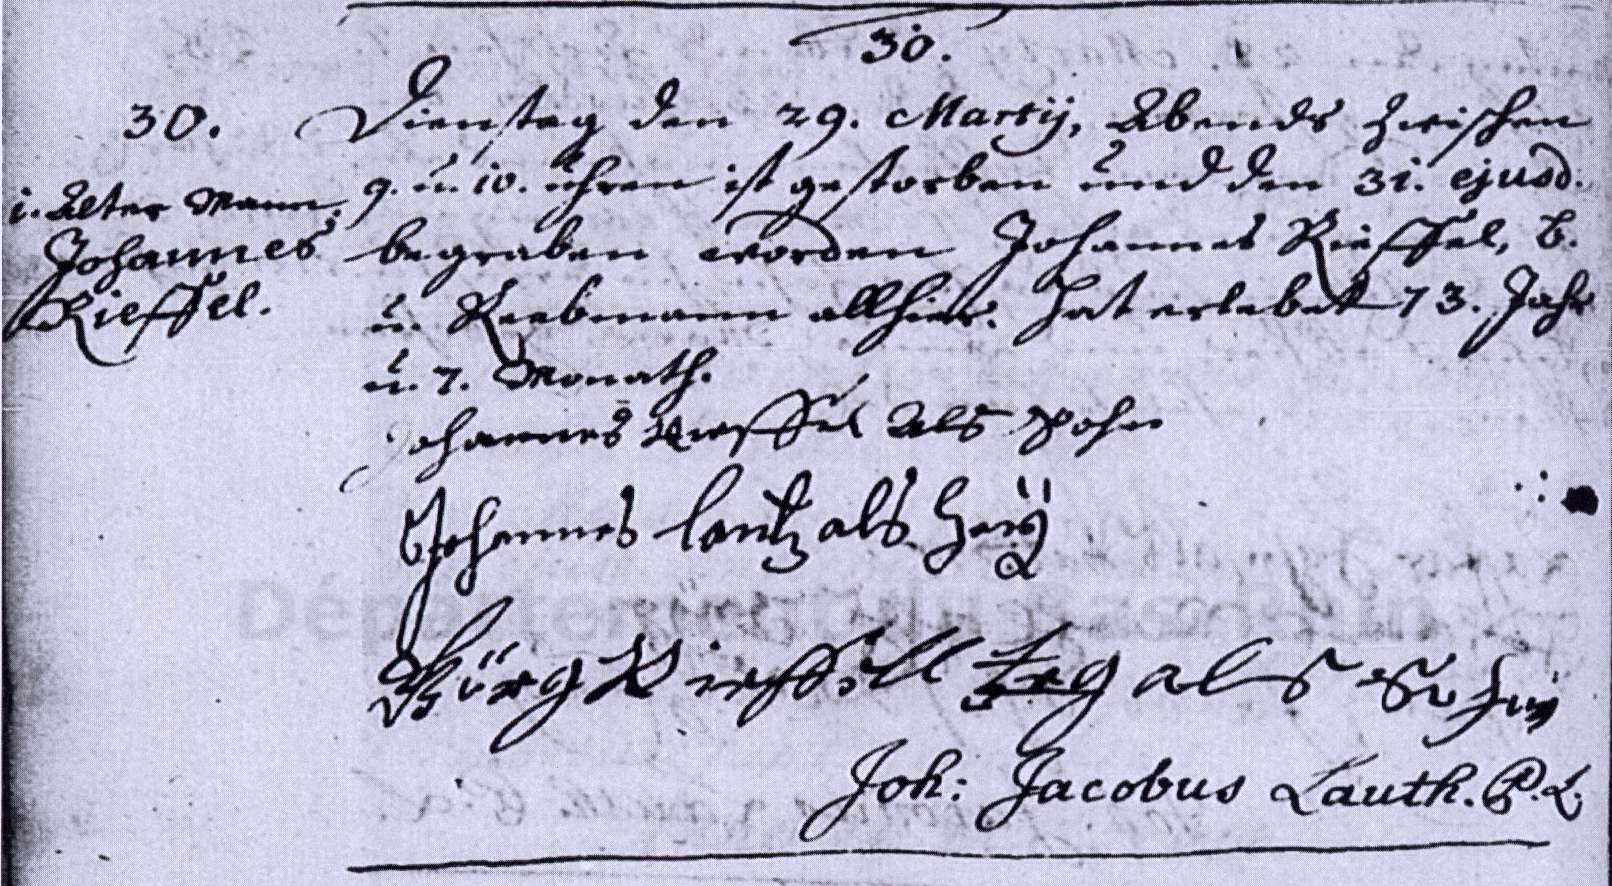 30.
30.
Dienstag den 29. Martij, Abends zwischen
9. u. 10. uhren ist gestorben und den 31. ejusd.
begraben worden Johannes Rieffel, B.
u. Reebmann allhier. hat erlebet 73. Jahr
u. 7. Monath.
1. Alter Mann.
Johannes
Rieffel.
Johannes Rieffel als Sohn
Johannes lantz als
Rieffell als Sohn
Joh: Jacobus Lauth. P. L.
Département du Bas-Rhin